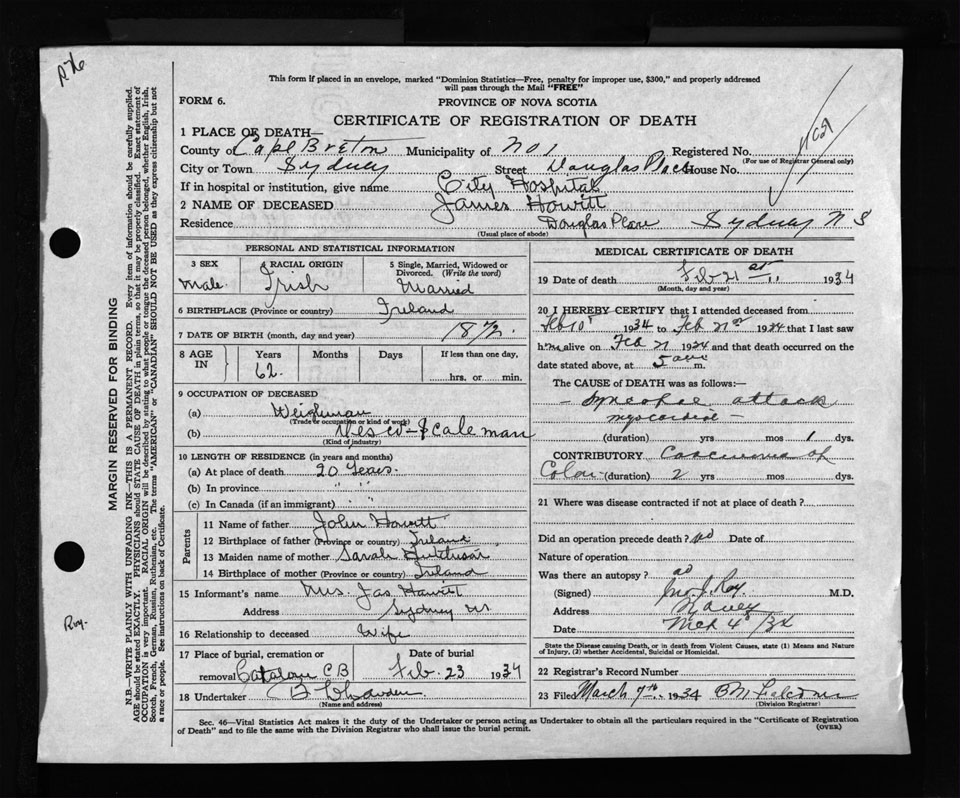 This form if placed in an envelope, marked "Dominion Statistics—Free, penalty for improper use, $300," and properly addressed
will pass through the Mail "FREE"
FORM 6.
PROVINCE OF NOVA SCOTIA
CERTIFICATE OF REGISTRATION OF DEATH
1 PLACE OF DEATH—
County of Cape Breton Municipality of No 1 Registered No.
(For use of Registrar General only)
City or Town Sydney Street Douglas Place House No.
If in hospital or institution, give name City Hospital
2 NAME OF DECEASED James Howitt
Residence Douglas Place Sydney N S
(Usual place of abode)
PERSONAL AND STATISTICAL INFORMATION
3 SEX 4 RACIAL ORIGIN 5 Single, Married, Widowed or
Divorced. (Write the word)
Male Irish Married
6 BIRTHPLACE (Province or country) Ireland
7 DATE OF BIRTH (month, day and year) 1872.
8 AGE IN Years Months Days If less than one day,
62. hrs. or min.
9 OCCUPATION OF DECEASED
(a) Weighman
(Trade or occupation or kind of work)
(b) Scaleman
(Kind of industry)
10 LENGTH OF RESIDENCE (in years and months)
(a) At place of death 20 Years.
(b) In province " "
(c) In Canada (if an immigrant) " "
Parents
11 Name of father John Howitt
12 Birthplace of father (Province or country) Ireland
13 Maiden name of mother Sarah Hutchison
14 Birthplace of mother (Province or country) Ireland
15 Informant's name Mrs. Jas Howitt
Address Sydney NS
16 Relationship to deceased Wife
17 Place of burial, cremation or
removal Catalone C B
Date of burial
Feb. 23 1934
18 Undertaker
(Name and address)
MEDICAL CERTIFICATE OF DEATH
19 Date of death Feb 21 st 1934
(Month, day and year)
20 I HEREBY CERTIFY that I attended deceased from
Feb 10 1934 to Feb 21st 1934 that I last saw
him alive on Feb 21 1934 and that death occurred on the
date stated above, at 5 am m.
The CAUSE of DEATH was as follows:—
- Syncopal attack
myocardial -
(duration) yrs mos 1 dys.
CONTRIBUTORY Carcinoma of
Colon (duration) 2 yrs mos dys.
21 Where was disease contracted if not at place of death?
Did an operation precede death? no Date of
Nature of operation
Was there an autopsy? no
(Signed) Jno. J. Roy. M.D.
Address
Date Mch 4 /34
State the Disease causing Death, or in death from Violent Causes, state (1) Means and Nature
of Injury, (2) whether Accidental, Suicidal or Homicidal.
22 Registrar's Record Number
23 Filed March 7th 1934
(Division Registrar)
Sec. 46—Vital Statistics Act makes it the duty of the Undertaker or person acting as Undertaker to obtain all the particulars required in the "Certificate of Registration
of Death" and to file the same with the Division Registrar who shall issue the burial permit.
(OVER)
MARGIN RESERVED FOR BINDING
N.B.—WRITE PLAINLY WITH UNFADING INK—THIS IS A PERMANENT RECORD. Every item of information should be carefully supplied.
AGE should be stated EXACTLY. PHYSICIANS should STATE CAUSE OF DEATH in plain terms, so that it may be properly classified. Exact statement of
OCCUPATION is very important. RACIAL ORIGIN will be described by stating to what people or tongue the deceased person belonged, whether English, Irish,
Scotch, French, German, Russian, Ruthenian, etc. The terms "AMERICAN" or "CANADIAN" SHOULD NOT BE USED as they express citizenship but not
a race or people. See instructions on back of Certificate.